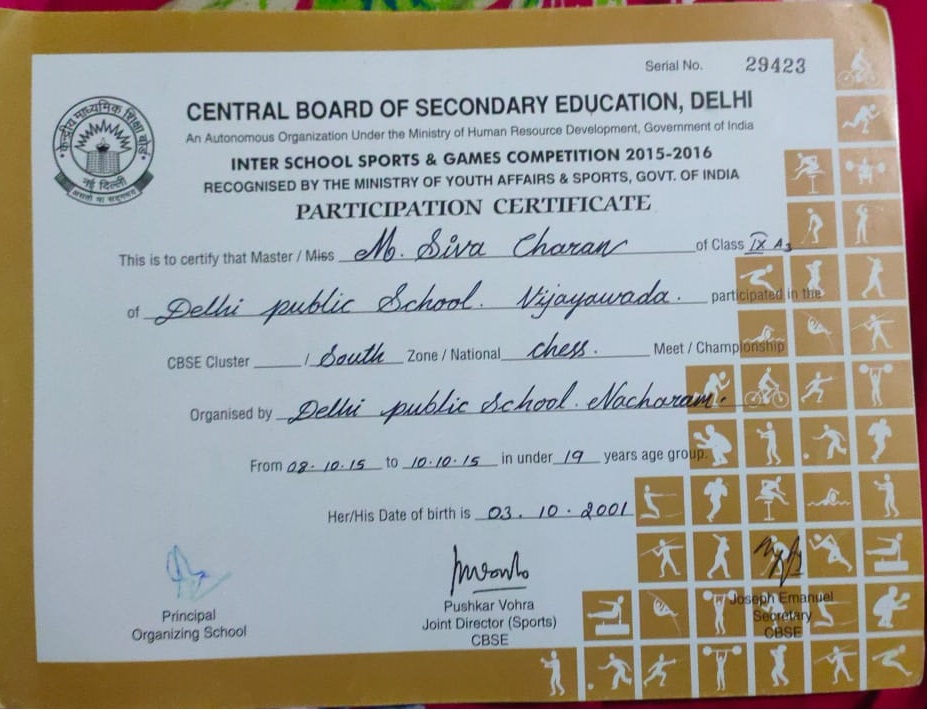 Serial No. 29423
केन्द्रीय माध्यमिक शिक्षा बोर्ड
नई दिल्ली
असतो मा सद्गमय
CENTRAL BOARD OF SECONDARY EDUCATION, DELHI
An Autonomous Organization Under the Ministry of Human Resource Development, Government of India
INTER SCHOOL SPORTS & GAMES COMPETITION 2015-2016
RECOGNISED BY THE MINISTRY OF YOUTH AFFAIRS & SPORTS, GOVT. OF INDIA
PARTICIPATION CERTIFICATE
This is to certify that Master / Miss M. Siva Charan of Class IX A3
of Delhi public School. Vijayawada. participated in the
CBSE Cluster / South Zone / National chess. Meet / Championship
Organised by Delhi public School. Nacharam.
From 08.10.15 to 10.10.15 in under 19 years age group.
Her/His Date of birth is 03.10.2001
Principal
Organizing School
Pushkar Vohra
Joint Director (Sports)
CBSE
Joseph Emanuel
Secretary
CBSE